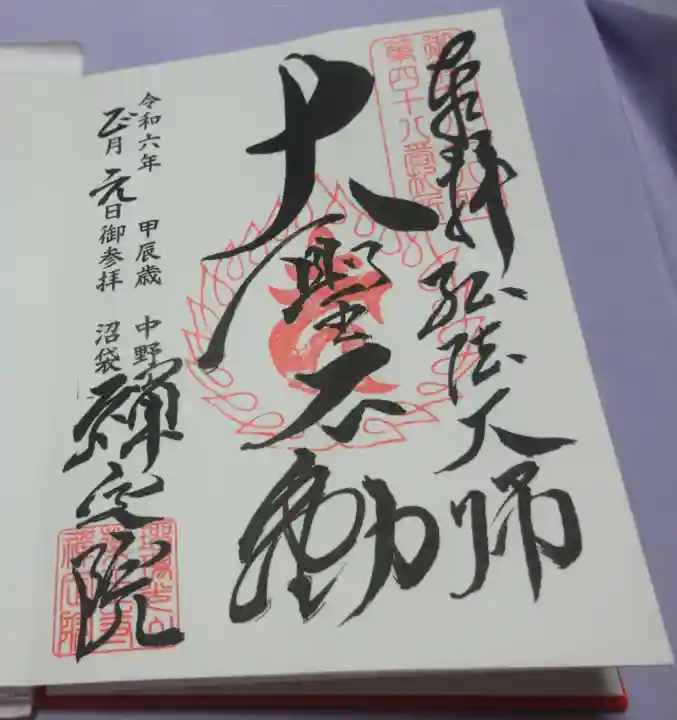 奉拝 弘法大師
第四十八番札所
大聖不動
令和六年 甲辰歳 中野
正月元日御参拝 沼袋
禅定院